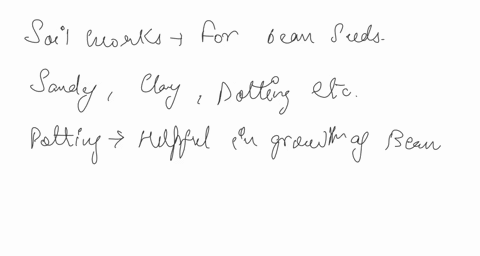 Soil works → for bean seeds.
Sandy, Clay, Potting etc.
Potting → Helpful in growth of Bean